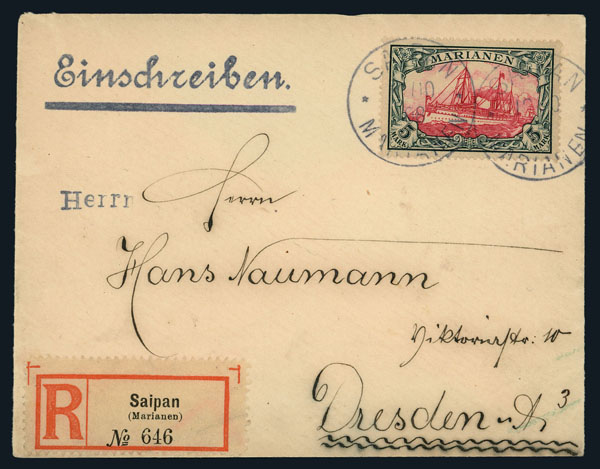 Einschreiben.
MARIANEN
5 5
MARK MARK
MARIANEN
Herrn
Herrn
Hans Naumann
Viktoriastr: 10
Dresden A 3
R
Saipan
(Marianen)
No 646